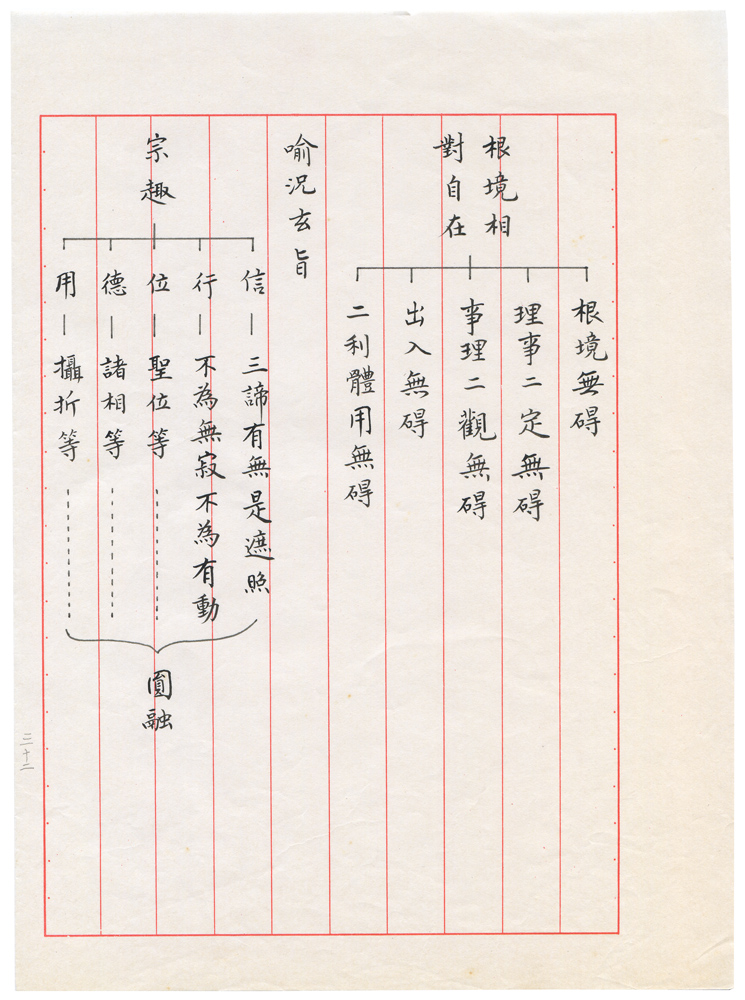 根境相
對自在
根境無碍
理事二定無碍
事理二觀無碍
出入無碍
二利體用無碍
喻況玄旨
宗趣
信｜三諦有無是遮照
行｜不為無寂不為有動
位｜聖位等
德｜諸相等
用｜攝折等
圓融
三十二